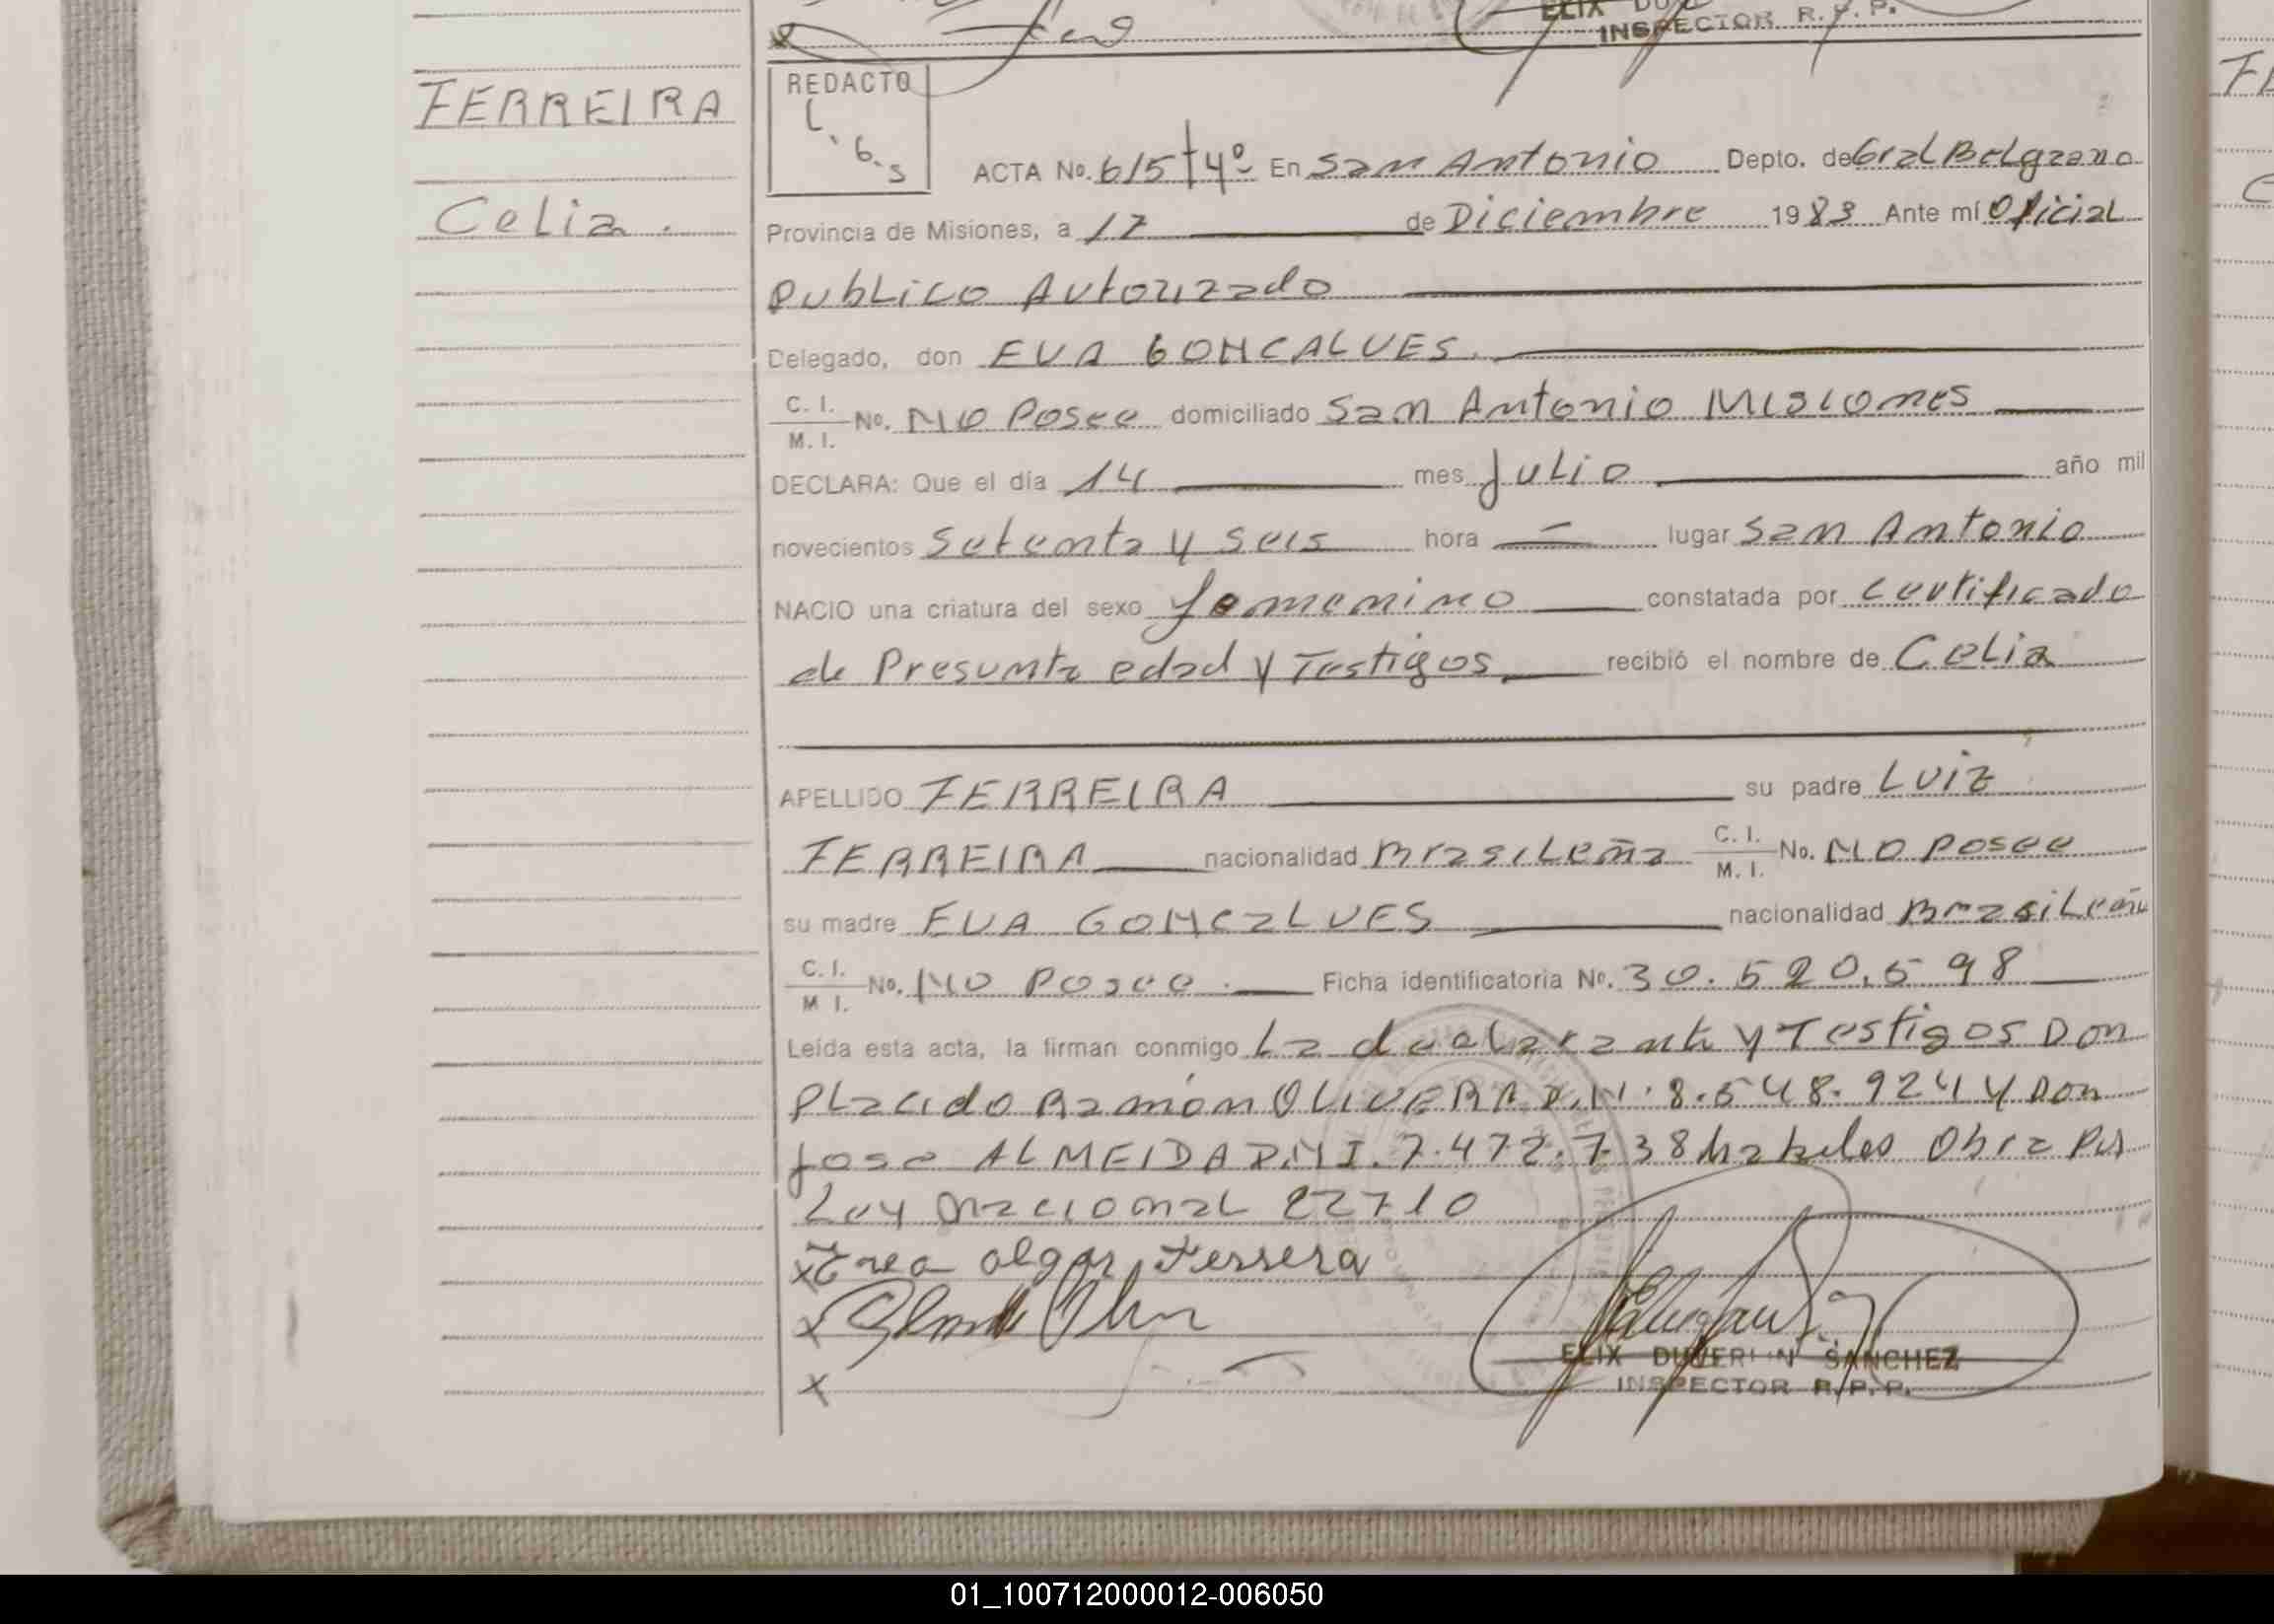 ELIX DU
INSPECTOR R.P.P.
FERREIRA
Celia.
REDACTO
L.G.S
ACTA No. 615 tº 4º En San Antonio Depto. de Gral Belgrano
Provincia de Misiones, a 17 de Diciembre 1983 Ante mí Oficial
Publico Autorizado
Delegado, don EVA GONCALVES.
C. I.
M. I. No. No Posee domiciliado San Antonio Misiones
DECLARA: Que el día 14 mes Julio año mil
novecientos Setenta y Seis hora lugar San Antonio
NACIO una criatura del sexo femenino constatada por certificado
de Presunta edad y Testigos recibió el nombre de Celia
APELLIDO FERREIRA su padre LUIZ
FERREIRA nacionalidad Brasileña C. I.
M. I. No. No posee
su madre EVA GONCALVES nacionalidad Brasileña
C. I.
M I. No. No Posee. Ficha identificatoria No. 30.520.598
Leída esta acta, la firman conmigo La declarante y Testigos Don
Placido Ramón OLIVERA D.N. 8.548.924 y Don
Jose ALMEIDA D.N.I. 7.472.738 habeles Obra Por
Ley Nacional 22710
x
x
ELIX DUVER N SANCHEZ
INSPECTOR R.P.P.
x
01_100712000012-006050